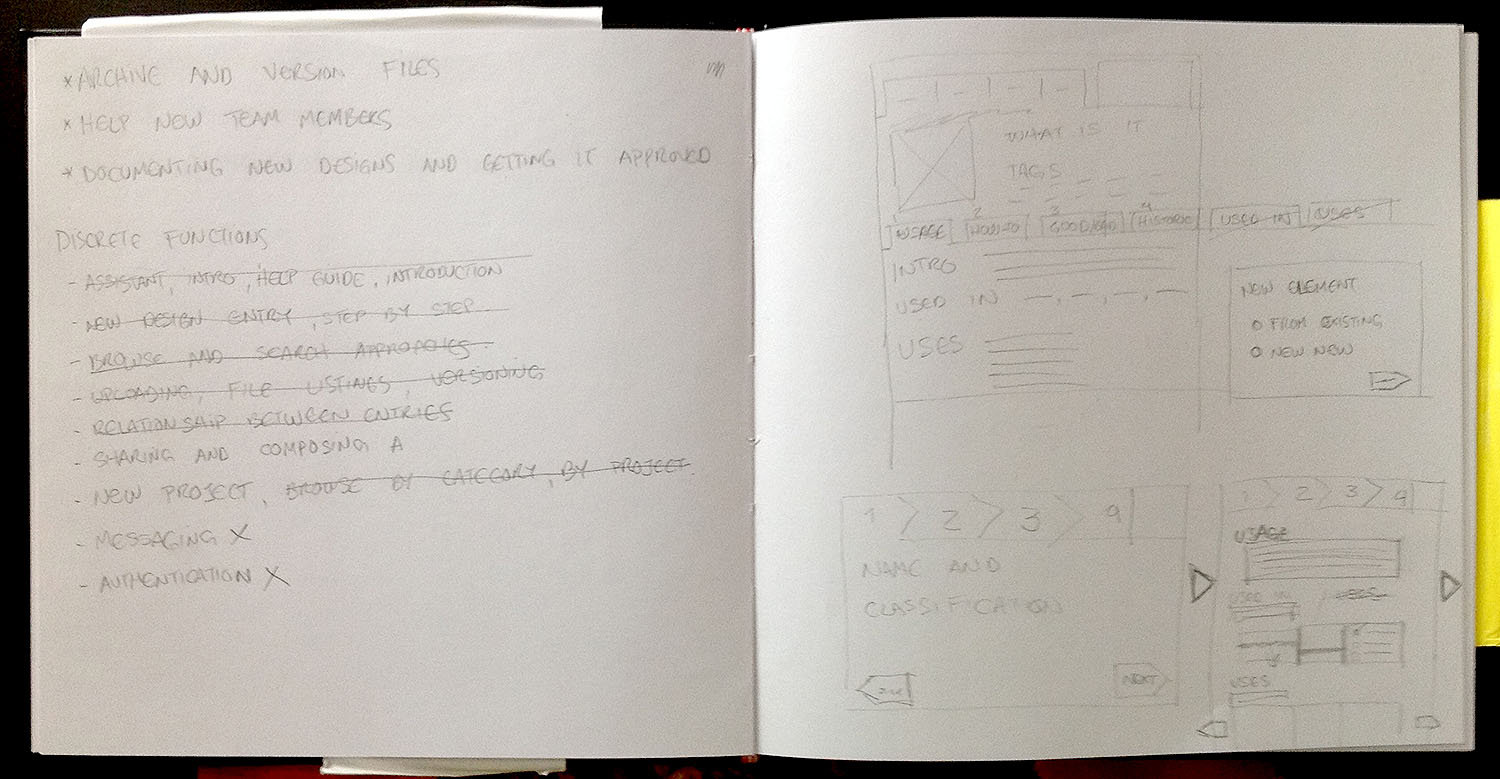 * ARCHIVE AND VERSION FILES
* HELP NEW TEAM MEMBERS
* DOCUMENTING NEW DESIGNS AND GETTING IT APPROVED
DISCRETE FUNCTIONS
- ASSISTANT, INTRO, HELP GUIDE, INTRODUCTION
- NEW DESIGN ENTRY, STEP BY STEP.
- BROWSE AND SEARCH
- UPLOADING, FILE LISTINGS, VERSIONING
- RELATIONSHIP BETWEEN ENTRIES
- SHARING AND COMPOSING A
- NEW PROJECT, BROWSE BY CATEGORY, BY PROJECT.
- MESSAGING X
- AUTHENTICATION X
WHAT IS IT
TAGS
1 2 3 4
USAGE HOW-TO GOOD/BAD HISTORIC USED IN USES
INTRO
USED IN
USES
NEW ELEMENT
O FROM EXISTING
O NEW NEW
1 2 3 4
NAME AND
CLASSIFICATION
NEXT
1 2 3 4
USAGE
USED IN / USES
USES